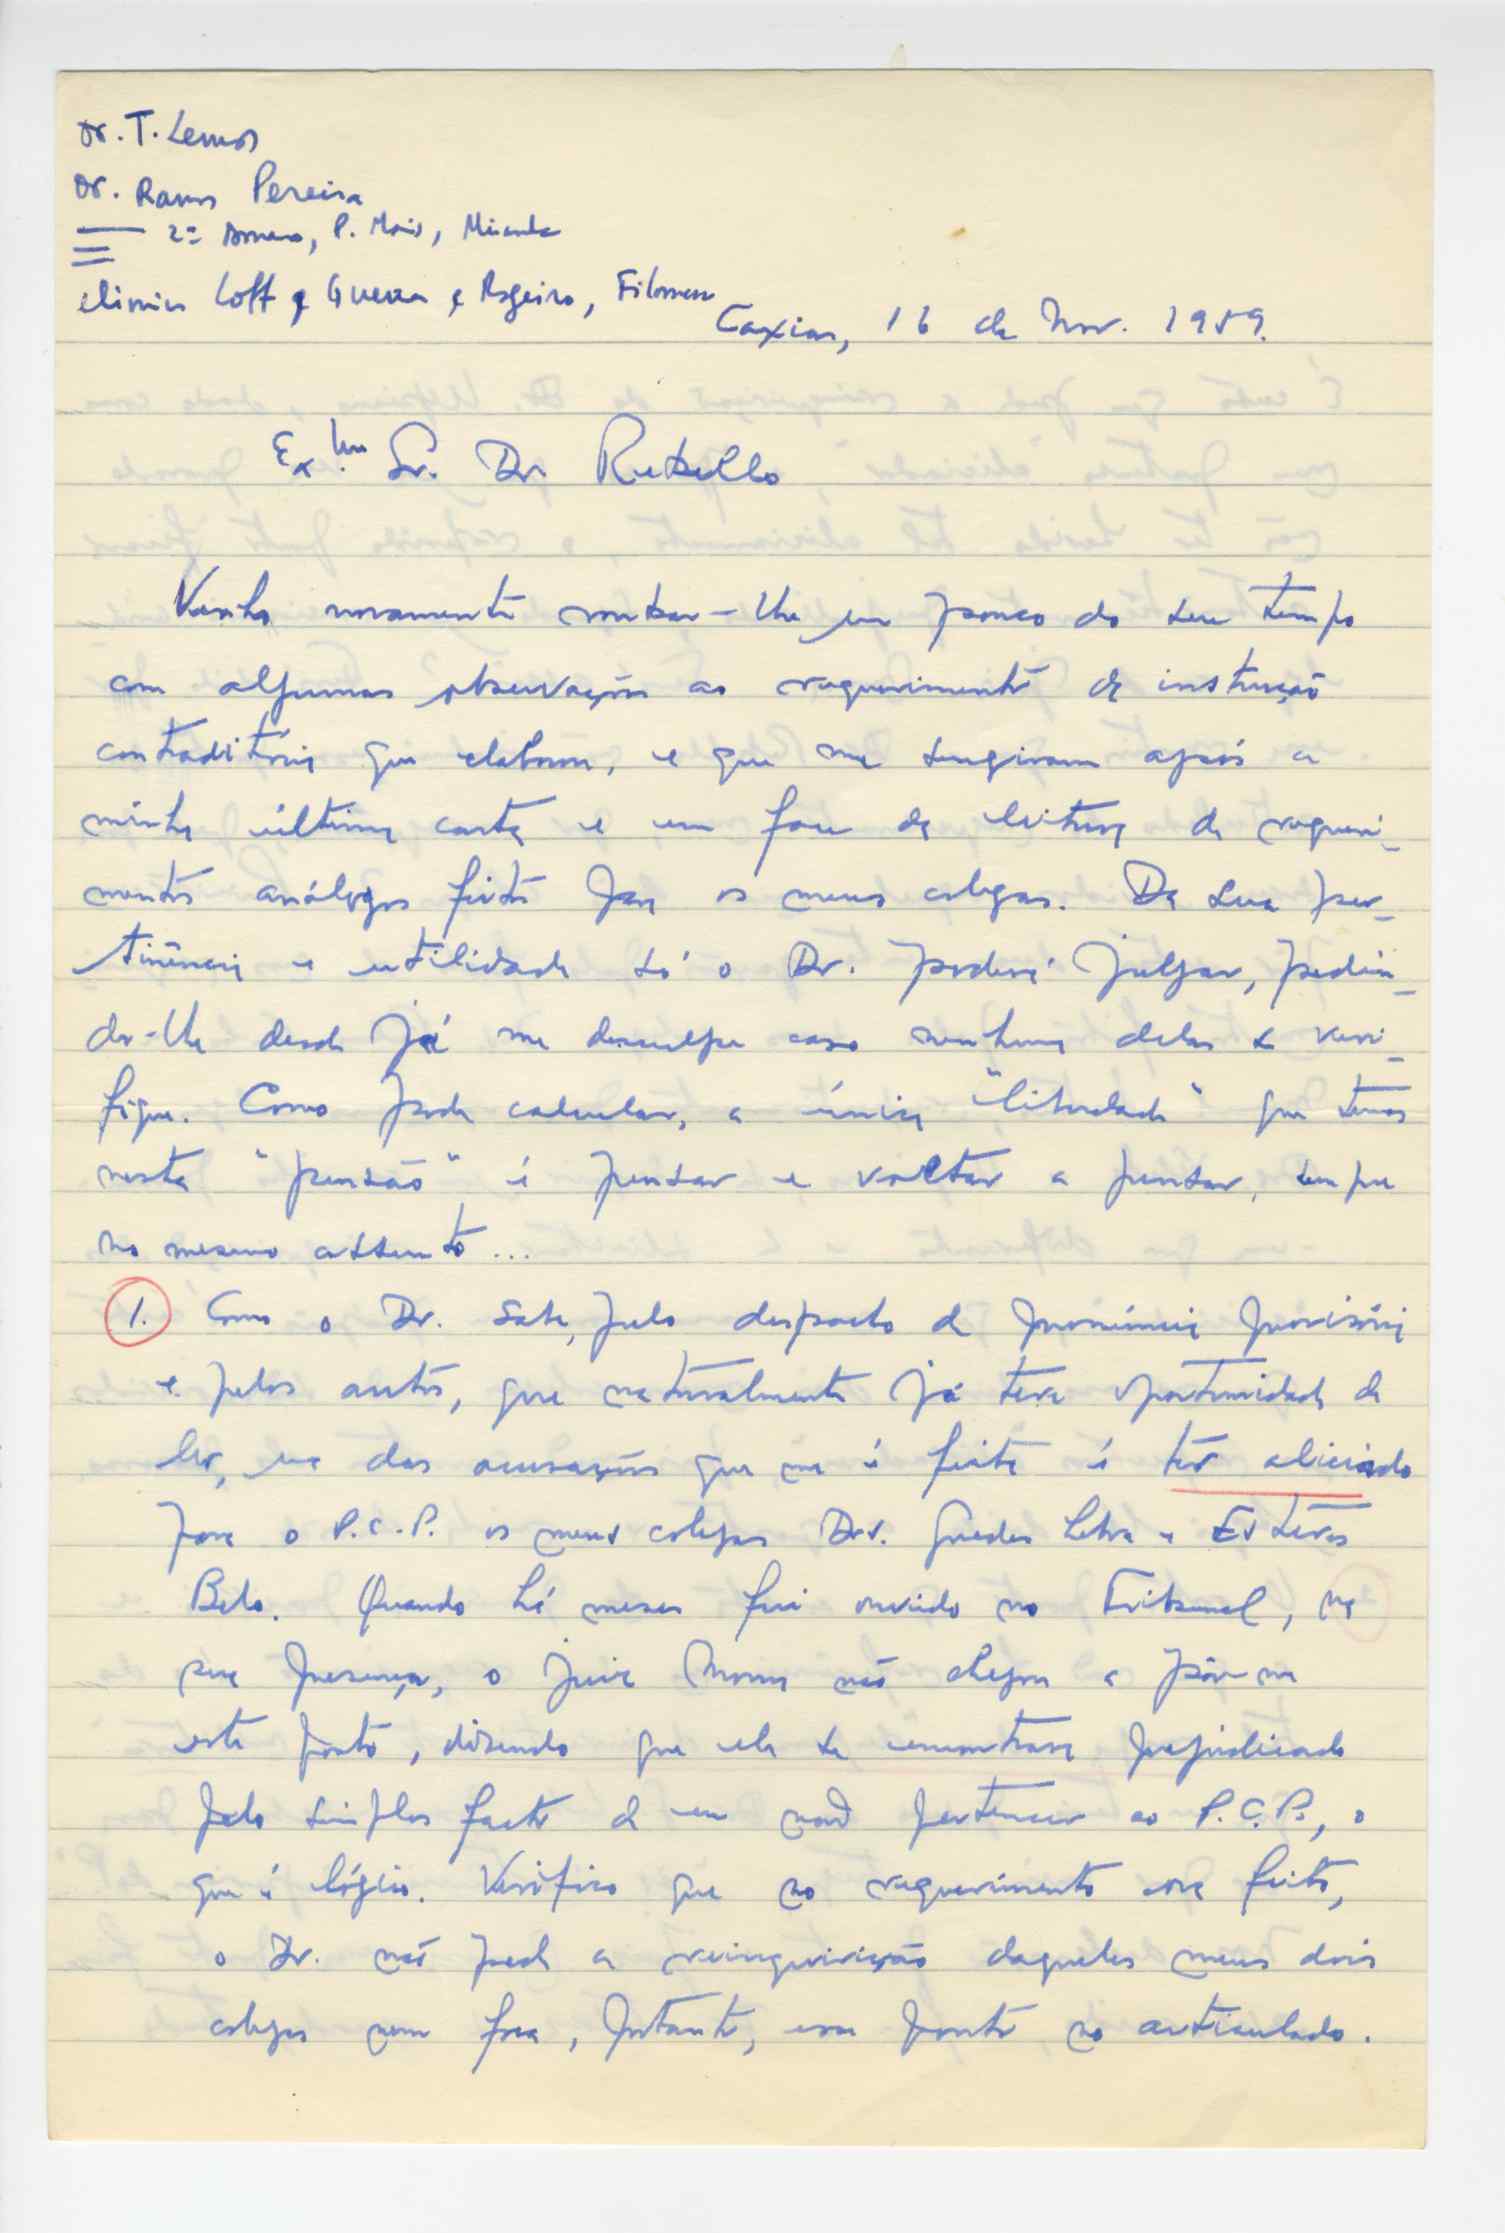 Dr. T. Lemos
Dr. Ramos Pereira
2º , P. Mais, Miranda
eliminar Loff e Guerra e Rogeiro, Filomena
Caxias, 16 de Nov. 1959.
Ex.mo Sr. Dr. Rebello
Venho novamente roubar-lhe um pouco do seu tempo
com algumas observações ao requerimento de instrução
contraditória que elaborou, e que me surgiram após a
minha última carta e em face da leitura de requeri-
mentos análogos feitos para os meus colegas. Da sua per-
tinência e utilidade só o Dr. poderá julgar, pedin-
do-lhe desde já me desculpe caso nenhuma delas se veri-
fique. Como pode calcular, a única "liberdade" que temos
nesta "pensão" é pensar e voltar a pensar, sempre
no mesmo assunto...
1. Como o Dr. sabe, pelo despacho de pronúncia provisória
e pelos autos, que naturalmente já teve oportunidade de
ler, uma das acusações que me é feita é ter aliciado
para o P.C.P. os meus colegas Drs. Guedes Lebre e Esteves
Belo. Quando há meses fui ouvido no Tribunal, na
sua presença, o juiz não chegou a pôr-me
este ponto, dizendo que ele se encontrava prejudicado
pelo simples facto de eu não pertencer ao P.C.P., o
que é lógico. Verifico que no requerimento ora feito,
o Dr. não pede a reinquirição daqueles meus dois
colegas nem foca, portanto, esse ponto no articulado.